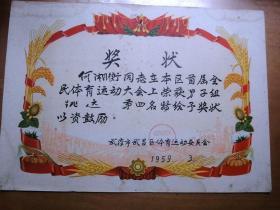 奖状
何湘衡同志在本区首届全
民体育运动大会上荣获男子组
跳远 第四名特给予奖状
以资鼓励
武汉市武昌区体育运动委员会
1959. 3.